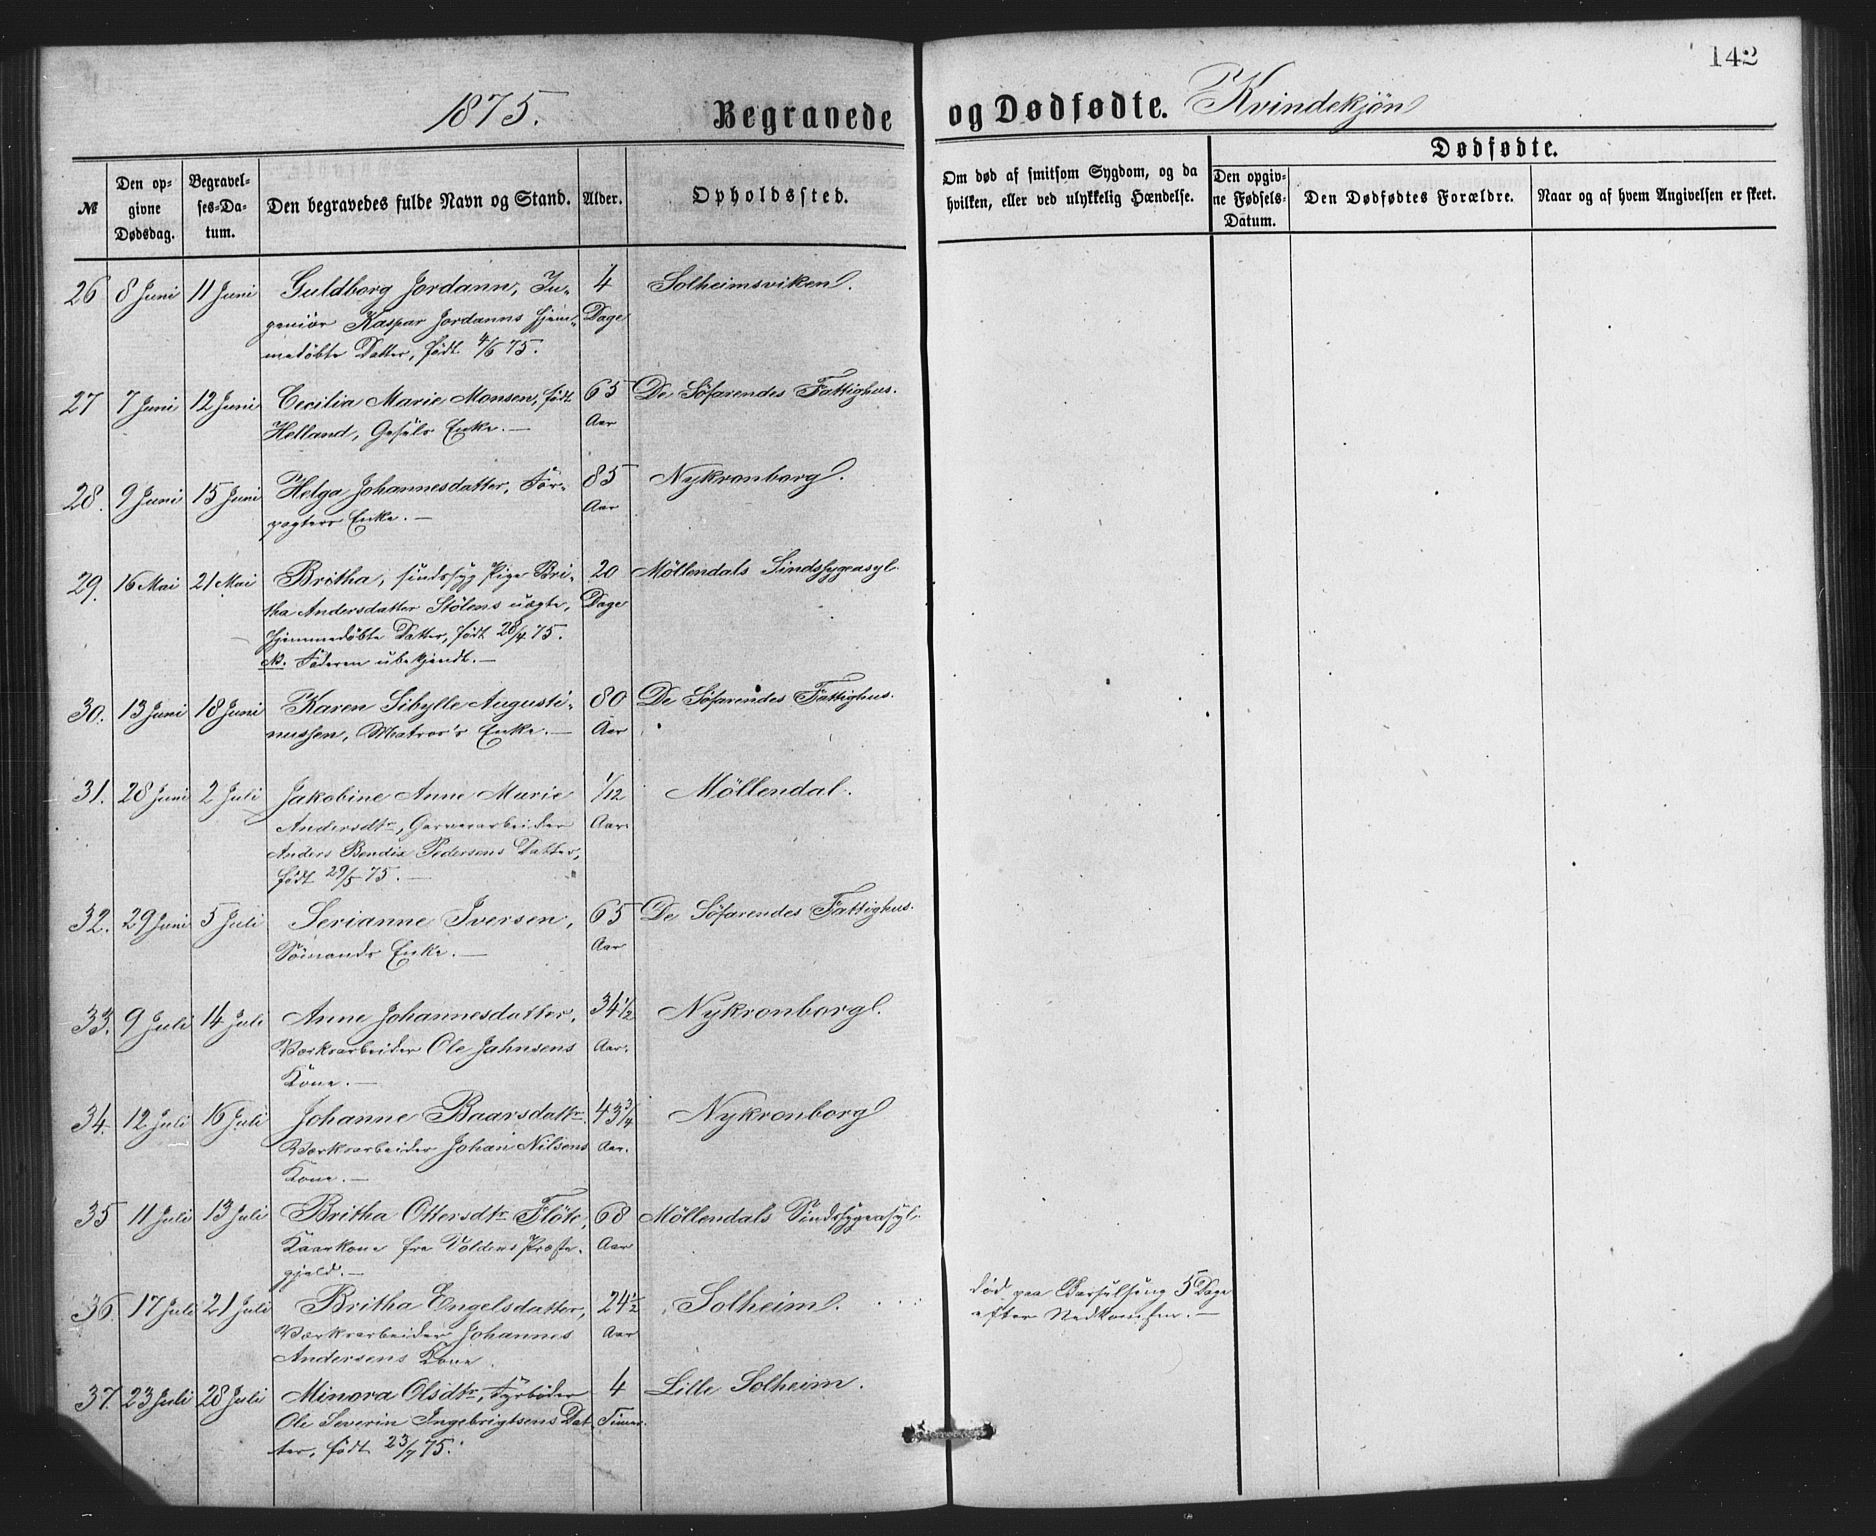 142
1875.
Begravede og Dødfødte. Kvindekjøn
№
Den opgivne Dødsdag.
Begravelses-Datum.
Den begravedes fulde Navn og Stand.
Alder.
Opholdssted.
Om død af smitsom Sygdom, og da
hvilken, eller ved ulykkelig Hændelse.
Dødfødte.
Den opgivne Fødsels-Datum.
Den Dødfødtes Forældre.
Naar og af hvem Angivelsen er skeet.
26 8 Juni 11 Juni Guldborg Jordann, In- 4 Solheimsviken.
geniör Kaspar Jordanns hjem- Dage
medöbte Datter, födt 4/6 75.
27 7 Juni 12 Juni Cecilia Marie Monsen, födt 65 De Söfarendes Fattighus.
Helland, Enke.— Aar
28. 9 Juni 15 Juni Helga Johannesdatter, For- 85 Nykronborg.
pagters Enke.— Aar
29. 16 Mai 21 Mai Britha, sindssyg Pige Bri- 20 Möllendals Sindssygeasyl.
tha Andersdatter Stölens uægte, Dage
hjemmedöbte Datter, födt 28/4 75.
NB. Faderen ubekjendt.—
30. 13 Juni 18 Juni Karen Sibylle Augusti- 80 De Söfarendes Fattighus.
nussen, Matros's Enke.— Aar
31. 28 Juni 2 Juli Jakobine Anne Marie 1/12 Möllendal.
Andersdtr, Garverarbeider Aar.
Anders Bendix Pedersens Datter,
födt 29/5 75.—
32. 29 Juni 5 Juli Serianne Iversen, 65 De Söfarendes Fattighus.
Sömands Enke.— Aar
33. 9 Juli 14 Juli Anne Johannesdatter, 34 1/2 Nykronborg.
Værksarbeider Ole Jahnsens Aar.
Kone.—
34. 12 Juli 16 Juli Johanne Baarsdatr. 43 3/4 Nykronborg
Værksarbeider Johan Nilsens Aar.
Kone.—
35 11 Juli 13 Juli Britha Ottersdtr Flöte, 68 Möllendals Sindssygeasyl.
Kaarkone fra Voldens Præste- Aar
gjeld.—
36. 17 Juli 21 Juli Britha Engelsdatter, 24 1/2 Solheim. död paa Barselseng 5 Dage
Værksarbeider Johannes Aar efter Nedkomsten.—
Andersens Kone.
37. 23 Juli 28 Juli Minora Olsdtr, Fyrböder 4 Lille Solheim.
Ole Severin Ingebrigtsens Dat- Timer.
ter, födt 23/7 75.